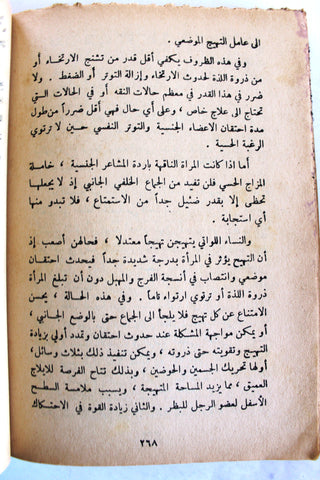 الى عامل التهيج الموضعي .
وفي هذه الظروف يكفي أقل قدر من تشنج الارتخاء أو
من ذروة اللذة لحدوث الارتخاء وإزالة التوتر أو الضغط . ولا
ضرر في هذا القدر في معظم حالات النقه أو في الحالات التي
تحتاج الى علاج خاص ، وعلى أي حال فهي أقل ضرراً من طول
مدة احتقان الاعضاء الجنسية والتوتر النفسي حسين لا ترتوي
الرغبة الحسية .
أما اذا كانت المرأة الناقهة باردة المشاعر الجنسية ، خاملة
المزاج الحسي فلن تفيد من الجماع الخلفي الجانبي إذ لا يجعلها
تحظى إلا بقدر ضئيل جداً من الاستمتاع ، فلا تبدو منها
أي استجابة .
والنساء اللواتي يتهيجن تهيجاً معتدلا ، فحالهن أصعب إذ
أن التهيج يؤثر في المرأة بدرجة شديدة جداً فيحدث احتقان
موضعي وانتصاب في أنسجة الفرج والمهبل دون أن تبلغ المرأة
ذروة اللذة أو ترتوي ارتواء تاماً . وفي هذه الحالة ، يحسن
الامتناع عن كل تهيج فلا يلجأ الى الجماع حتى بالوضع الجانبي ،
أو يمكن مواجهة المشكلة عند حدوث احتقان وتمدد أولي بزيادة
التهيج وتقويته حتى ذروته ، ويمكن تنفيذ ذلك بثلاث وسائل ،
أولها تحريك الجسمين والحوضين ، وبذلك تتاح الفرصة للايلاج
العميق ، مما يزيد المساحة المتهيجة ، وبسبب ملامسة السطح
الأسفل لعضو الرجل للبظر . والثاني زيادة القوة في الاحتكاك
٢٦٨